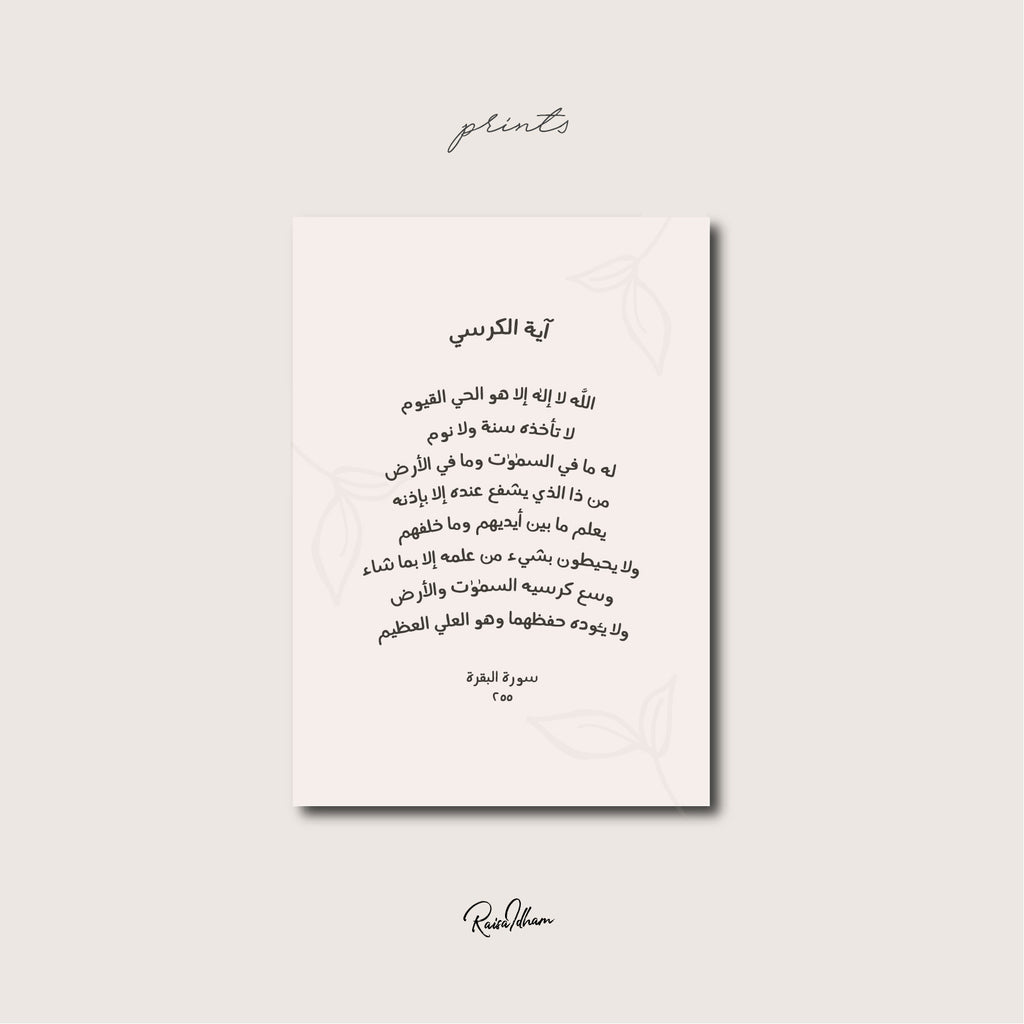 prints
آية الكرسي
اللّٰه لا إلٰه إلا هو الحي القيوم
لا تأخذه سنة ولا نوم
له ما في السمٰوٰت وما في الأرض
من ذا الذي يشفع عنده إلا بإذنه
يعلم ما بين أيديهم وما خلفهم
ولا يحيطون بشيء من علمه إلا بما شاء
وسع كرسيه السمٰوٰت والأرض
ولا يئوده حفظهما وهو العلي العظيم
سورة البقرة
٢٥٥
RaisaIdham